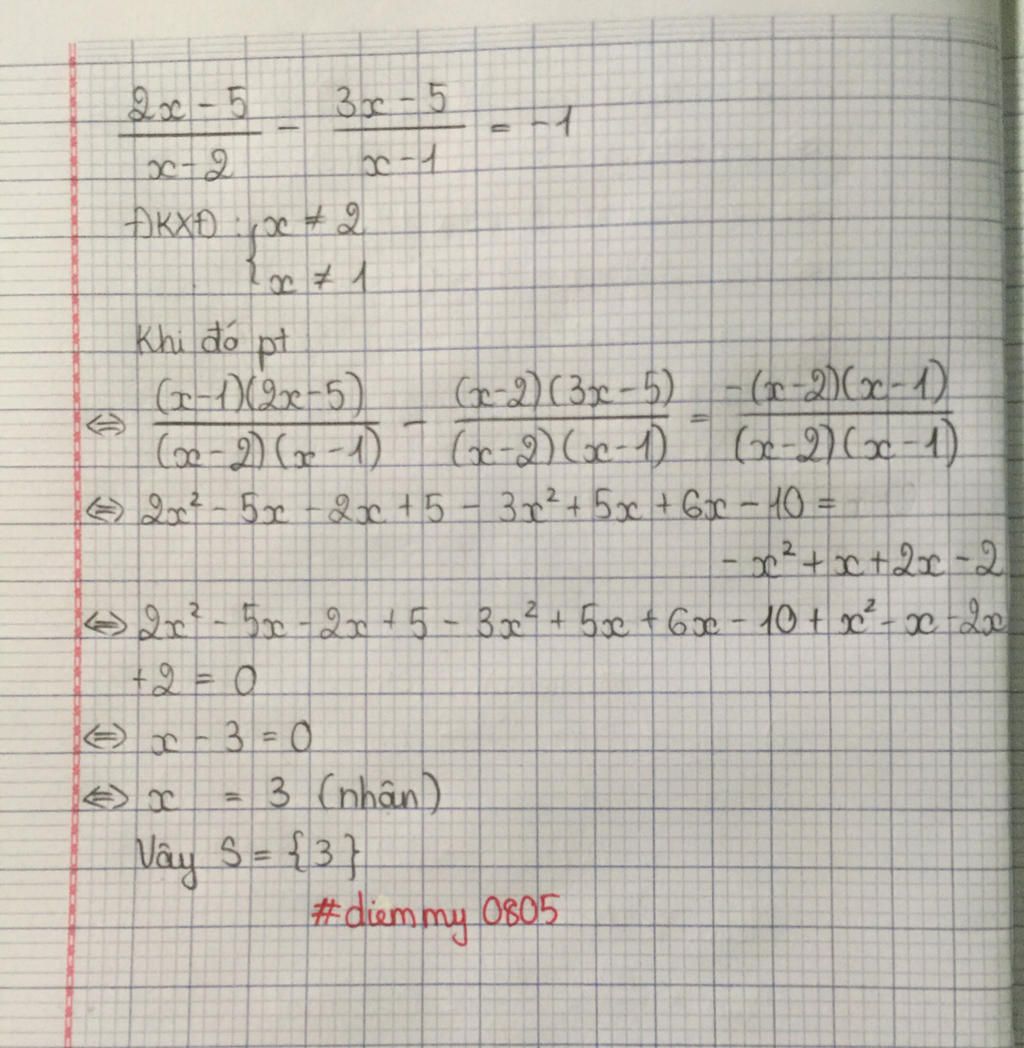 (2x - 5)/(x - 2) - (3x - 5)/(x - 1) = -1
ĐKXĐ : { x ≠ 2
x ≠ 1
Khi đó pt
⇔ (x-1)(2x-5)/(x-2)(x-1) - (x-2)(3x-5)/(x-2)(x-1) = -(x-2)(x-1)/(x-2)(x-1)
⇔ 2x² - 5x - 2x + 5 - 3x² + 5x + 6x - 10 =
- x² + x + 2x - 2
⇔ 2x² - 5x - 2x + 5 - 3x² + 5x + 6x - 10 + x² - x - 2x
+ 2 = 0
⇔ x - 3 = 0
⇔ x = 3 (nhân)
Vây S = {3}
#diemmy 0805